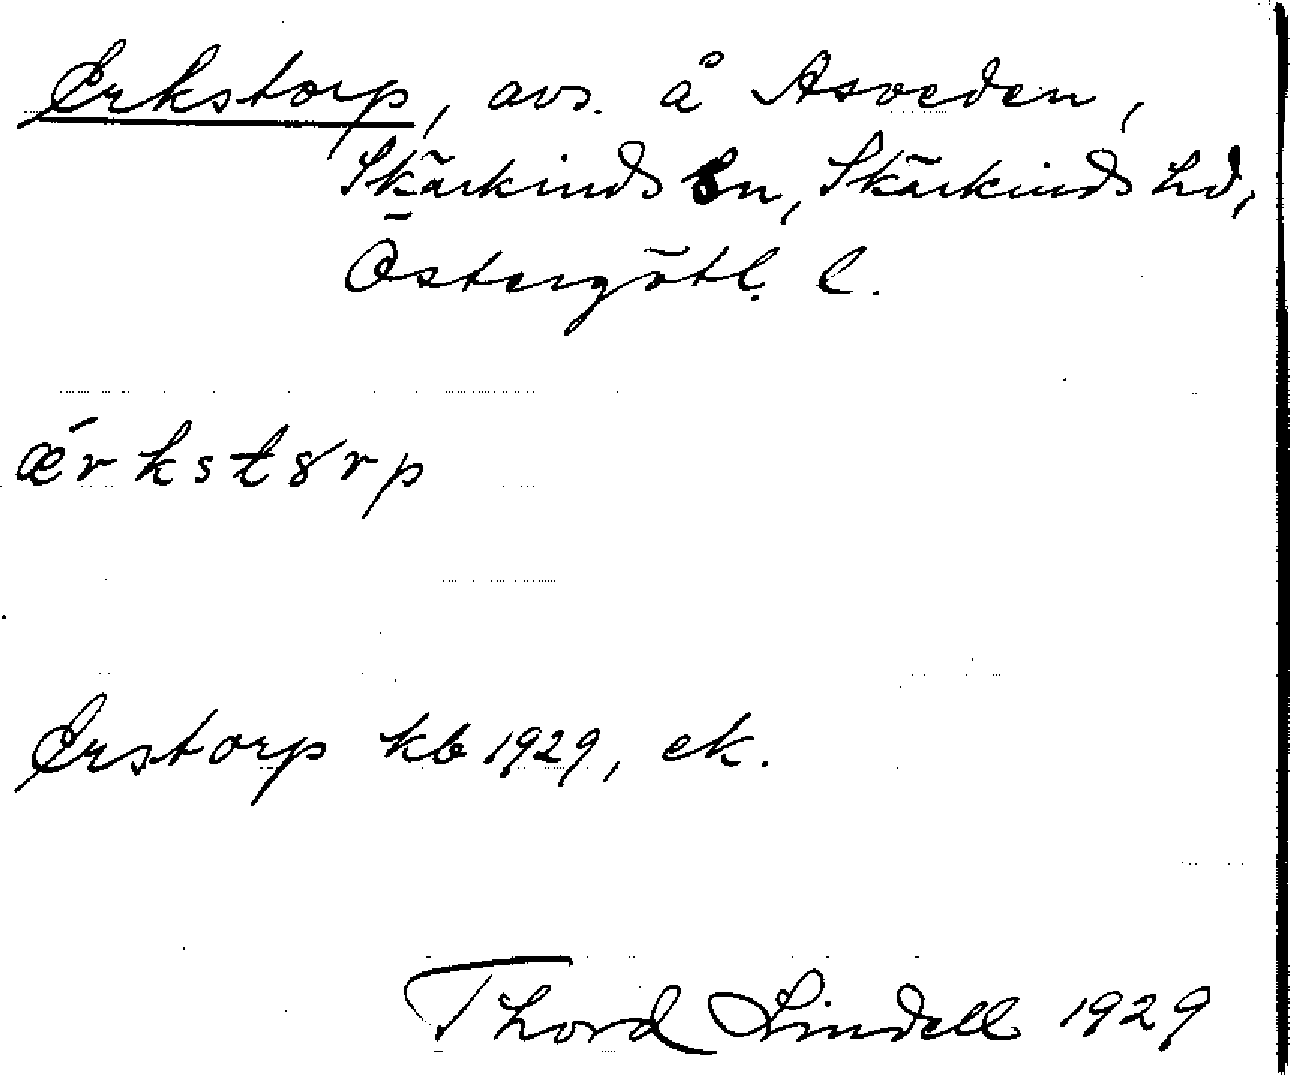 Erkstorp, avs. å Asveden,
Skärkinds Sn, Skärkinds hd,
Östergötl. l.
ǽrkstȣrp
Erstorp kb 1929, ek.
Thord Lindell 1929